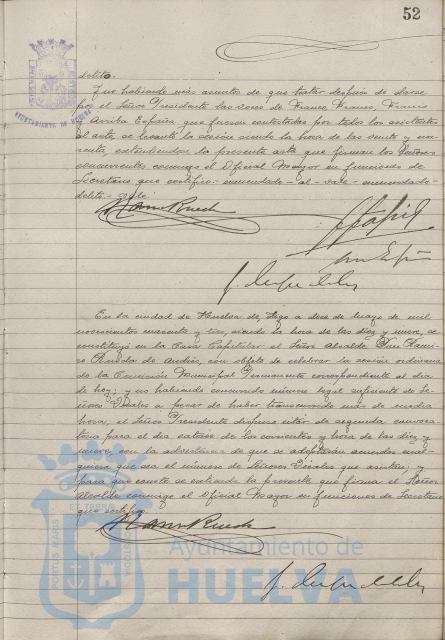 52
delito.
Y no habiendo más asuntos de que tratar después de darse
por el Señor Presidente las voces de Franco, Franco, Franco
y Arriba España que fueron contestadas por todos los asistentes
al acto, se levantó la sesión siendo la hora de las veinte y
cuarenta, extendiendose la presente acta que firman los Señores
concurrentes conmigo el Oficial Mayor en funciones de
Secretario que certifico.- enmendado - al - vale - enmendado -
delito - vale.
AYUNTAMIENTO DE HUELVA
En la ciudad de Huelva de, hago a doce de mayo de mil
novecientos cuarenta y tres, siendo la hora de las diez y nueve, se
constituyó en la Casa Capitular el Señor Alcalde Don Rami-
ro Rueda de Andrés, con objeto de celebrar la sesión ordinaria
de la Comisión Municipal Permanente correspondiente al dia
de hoy; y no habiendo concurrido número legal suficiente de Se-
ñores Vocales a pesar de haber transcurrido más de media
hora, el Señor Presidente dispuso citar de segunda convoca-
toria para el dia catorce de los corrientes y hora de las diez y
nueve, con la advertencia de que se adoptarán acuerdos cual-
quiera que sea el número de Señores Vocales que asistan; y
para que conste se extiende la presente que firma el Señor
Alcalde conmigo el Oficial Mayor en funciones de Secretario
que certifico.
PORTUS MARIS
ET TERRAE
Ayuntamiento de
HUELVA